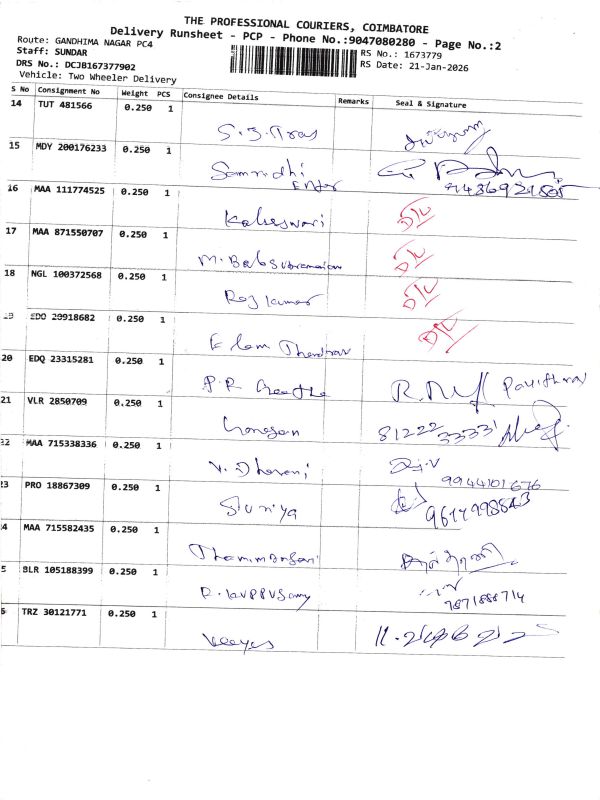 THE PROFESSIONAL COURIERS, COIMBATORE
Delivery Runsheet - PCP - Phone No.:9047080280 - Page No.:2
Route: GANDHIMA NAGAR PC4
RS No.: 1673779
Staff: SUNDAR
RS Date: 21-Jan-2026
DRS No.: DCJB167377902
Vehicle: Two Wheeler Delivery
S No Consignment No Weight PCS Consignee Details Remarks Seal & Signature
14 TUT 481566 0.250 1
15 MDY 200176233 0.250 1
Samridhi
Enter
16 MAA 111774525 0.250 1
Kaleswari D/L
17 MAA 871550707 0.250 1
M. Balasubramaniam D/L
18 NGL 100372568 0.250 1
Raj kumar D/L
19 EDO 29918682 0.250 1
Elam D/L
20 EDQ 23315281 0.250 1
P.R Geetha Pavithra
21 VLR 2850709 0.250 1
81222
33331
22 MAA 715338336 0.250 1
V. Dharani
9944101676
23 PRO 18867309 0.250 1
Suriya
24 MAA 715582435 0.250 1
25 BLR 105188399 0.250 1
R. kuppusamy
7871888714
26 TRZ 30121771 0.250 1